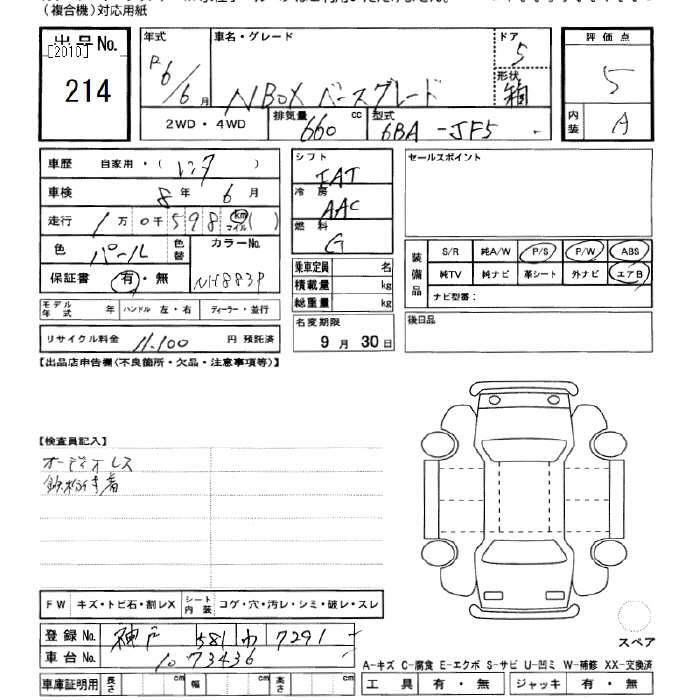 (複合機)対応用紙
出品No.
[2010]
214
年式
R6/6月
車名・グレード
NBOX ベースグレード
ドア
5
形状
箱
評価点
5
内装
A
2WD・4WD
排気量
660 cc
型式
6BA-JF5
車歴 自家用・(レンタ)
車検 8年 6月
走行 1万0千598 km マイル ( )
色 パール
色替
カラーNo.
NH883P
保証書 有・無
モデル年式 年
ハンドル 左・右
ディーラー・並行
リサイクル料金 11,100 円 預託済
シフト
IAT
冷房
AAC
燃料
G
乗車定員 名
積載量 kg
総重量 kg
名変期限
9月30日
セールスポイント
装備品
S/R 純A/W P/S P/W ABS
純TV 純ナビ 革シート 外ナビ エアB
ナビ型番:
後日品
【出品店申告欄(不良箇所・欠品・注意事項等)】
【検査員記入】
オーディオレス
FW キズ・トビ石・割レX
シート内装 コゲ・穴・汚レ・シミ・破レ・スレ
登録No. 神戸 581 わ 7291
車台No. 1073436
車庫証明用 長さ cm 幅 cm 高さ cm
スペア
A-キズ C-腐食 E-エクボ S-サビ U-凹ミ W-補修 XX-交換済
工具 有・無 ジャッキ 有・無